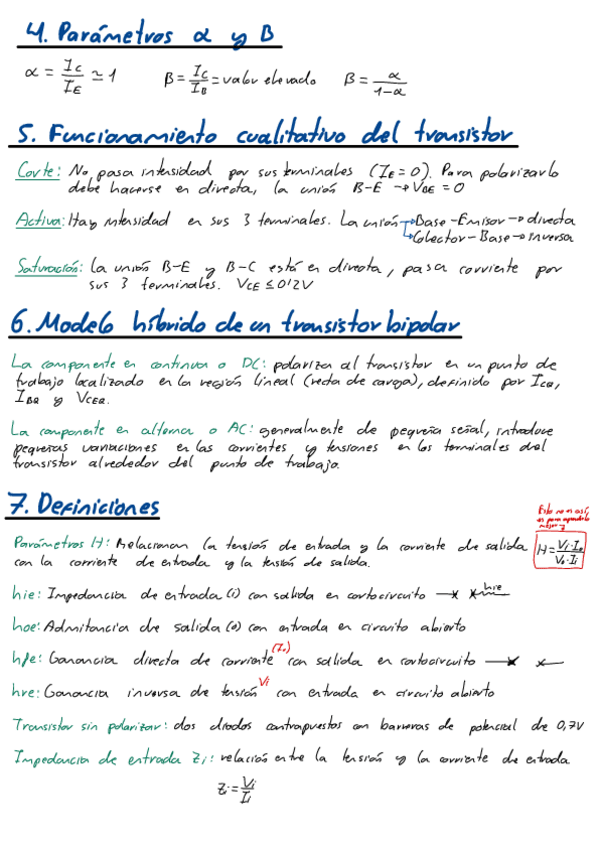 4. Parámetros α y β
α = Ic/IE ≃ 1 β = Ic/IB = valor elevado β = α/1-α
5. Funcionamiento cualitativo del transistor
Corte: No pasa intensidad por sus terminales (IE = 0). Para polarizarlo
debe hacerse en directa, la unión B-E → VBE = 0
Activa: Hay intensidad en sus 3 terminales. La unión → Base-Emisor → directa
→ Colector-Base → inversa
Saturación: la unión B-E y B-C está en directa, pasa corriente por
sus 3 terminales. VCE ≤ 0'2V
6. Modelo híbrido de un transistor bipolar
La componente en continua o DC: polariza al transistor en un punto de
trabajo localizado en la región lineal (recta de carga), definido por ICQ,
IBQ y VCEQ.
La componente en alterna o AC: generalmente de pequeña señal, introduce
pequeñas variaciones en las corrientes y tensiones en los terminales del
transistor alrededor del punto de trabajo.
7. Definiciones
Esto no es así,
es para aprenderlo
mejor
Parámetros H: Relacionan la tensión de entrada y la corriente de salida
con la corriente de entrada y la tensión de salida.
H = Vi·Io/Vo·Ii
hie: Impedancia de entrada (i) con salida en cortocircuito hie
hoe: Admitancia de salida (o) con entrada en circuito abierto
hfe: Ganancia directa de corriente (Io) con salida en cortocircuito
hre: Ganancia inversa de tensión Vi con entrada en circuito abierto
Transistor sin polarizar: dos diodos contrapuestos con barreras de potencial de 0,7V
Impedancia de entrada Zi: relación entre la tensión y la corriente de entrada
Zi = Vi/Ii